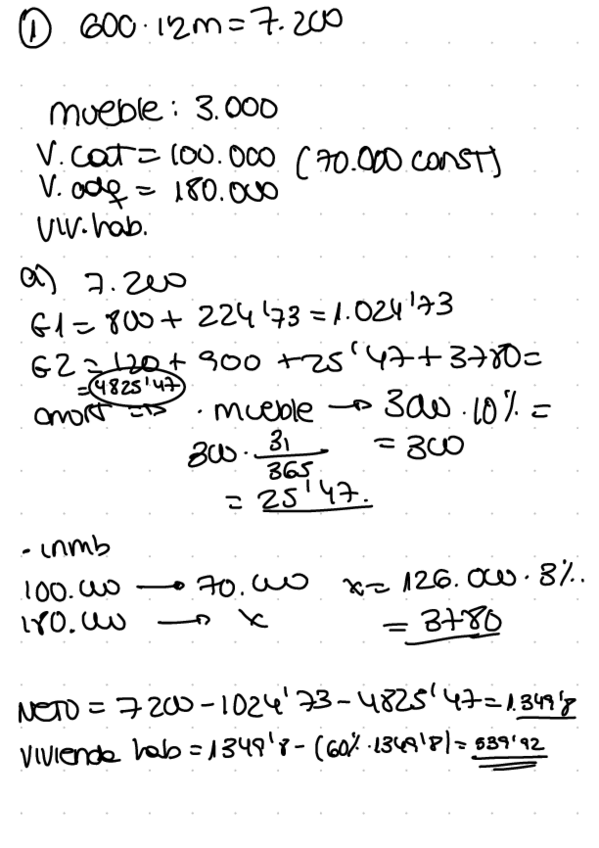 ① 600 · 12m = 7.200
mueble: 3.000
V. cat = 100.000 (70.000 CONST)
V. adq = 180.000
VIV. hab.
a) 7.200
G1 = 800 + 224'73 = 1.024'73
G2 = 120 + 900 + 25'47 + 3780 =
= 4825'47
amort => · mueble → 3000 · 10% =
300 · 31/365 = 300
= 25'47.
· inmb
100.000 → 70.000 x = 126.000 · 3%.
180.000 → x = 3780
NETO = 7200 - 1024'73 - 4825'47 = 1.349'8
VIVIENDA hab = 1349'8 - (60% · 1349'8) = 539'92